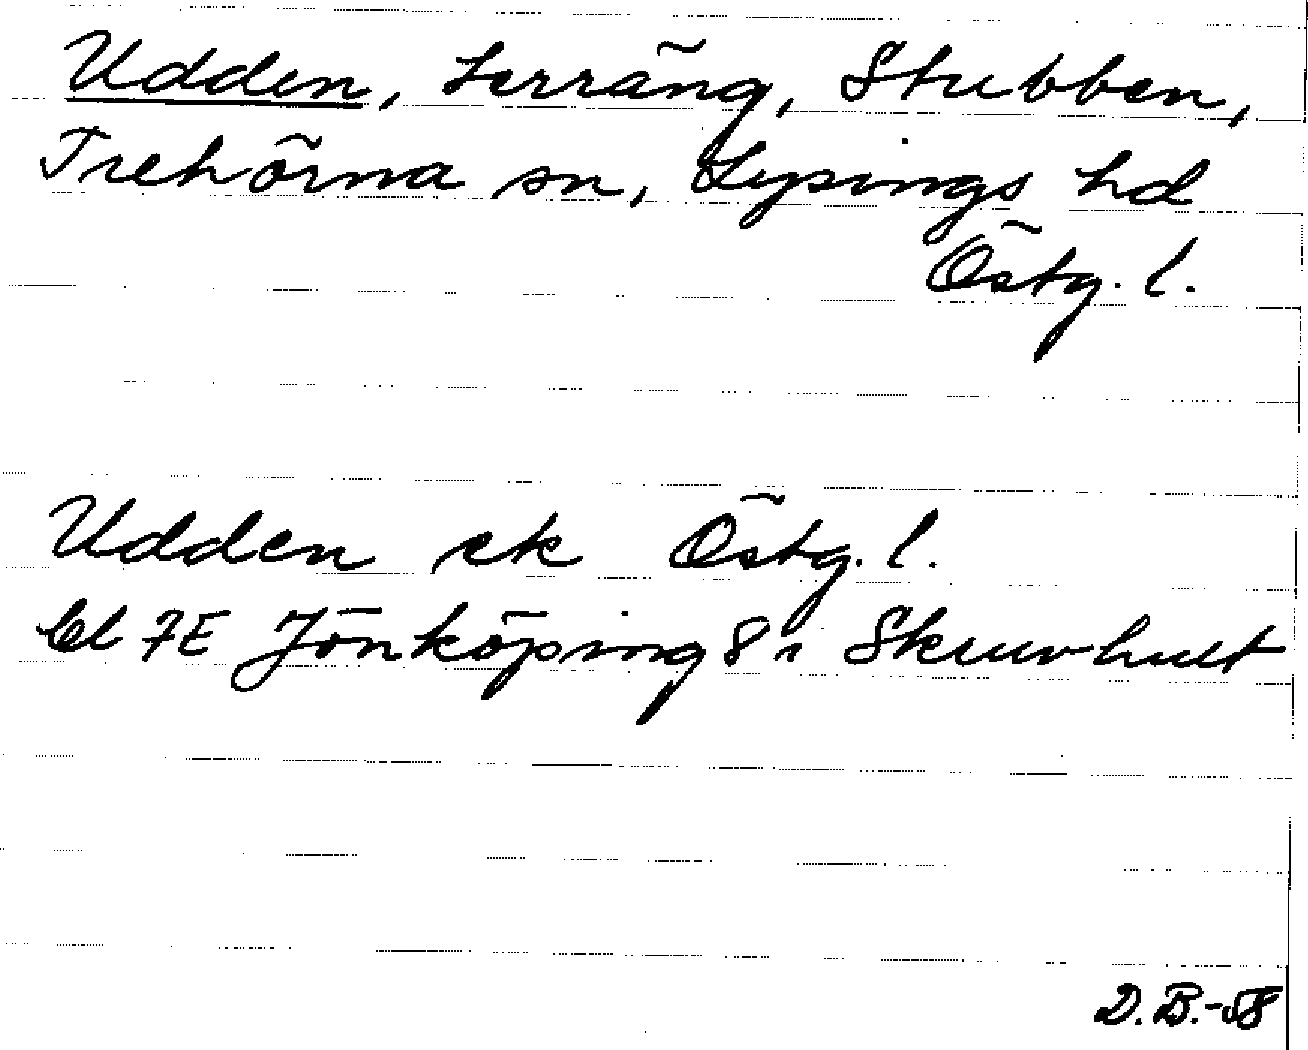 Udden, terräng, Stubben,
Trehörna sn, Lysings hd
Östg. l.
Udden ek Östg. l.
bl 7E Jönköping 8 i Skruvhult
D.B.-58